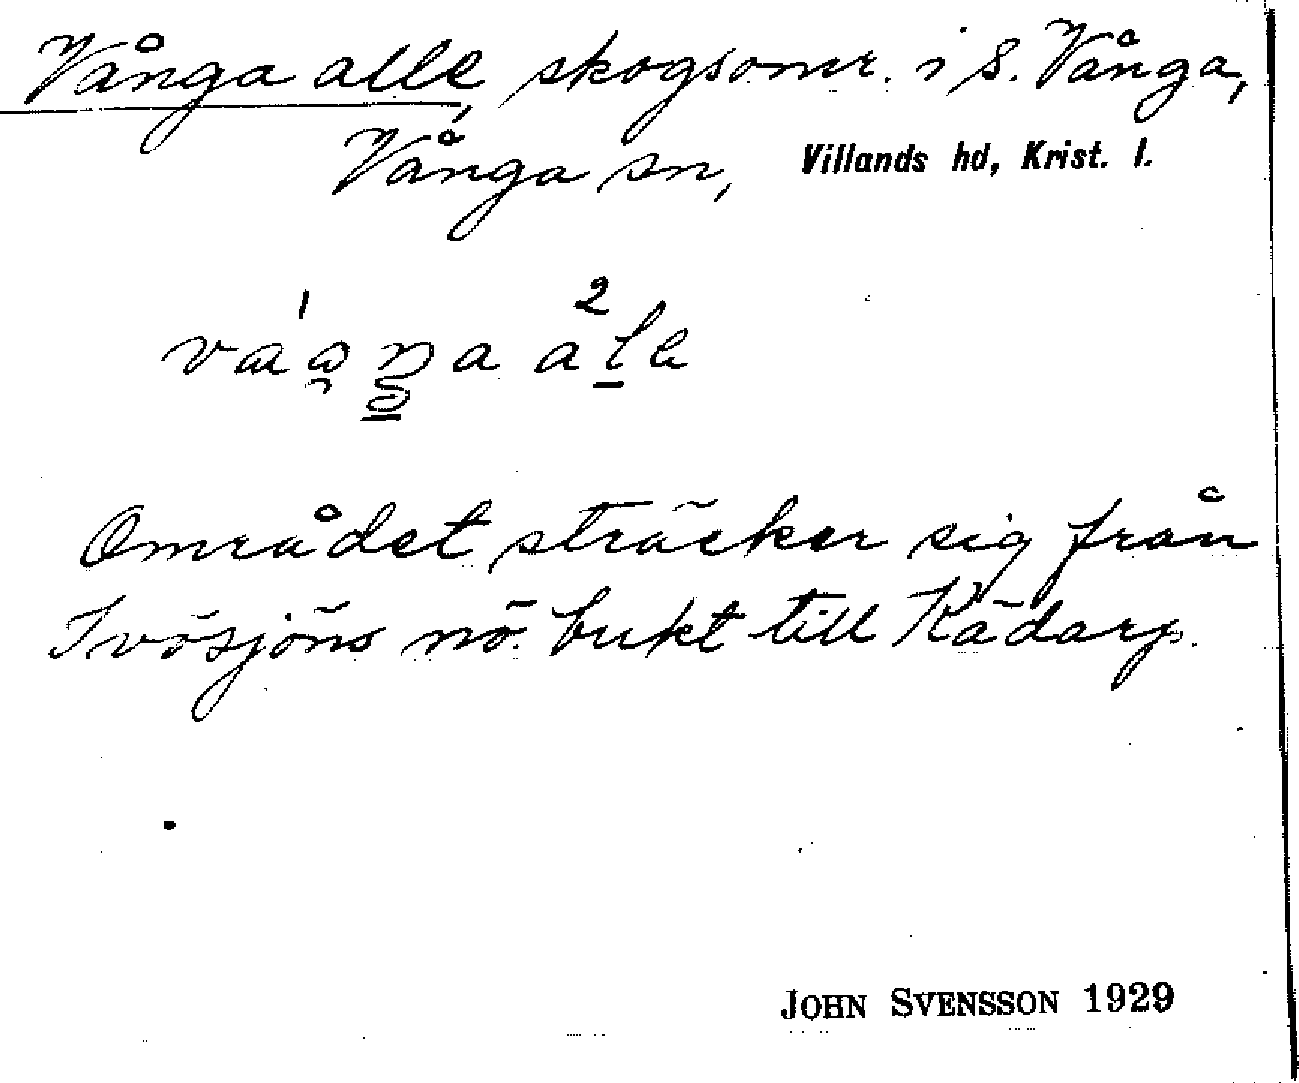 Vånga alle, skogsomr. i S. Vånga,
Vånga sn, Villands hd, Krist. l.
Området sträcker sig från
Ivösjöns nö. bukt till Kädarp.
JOHN SVENSSON 1929